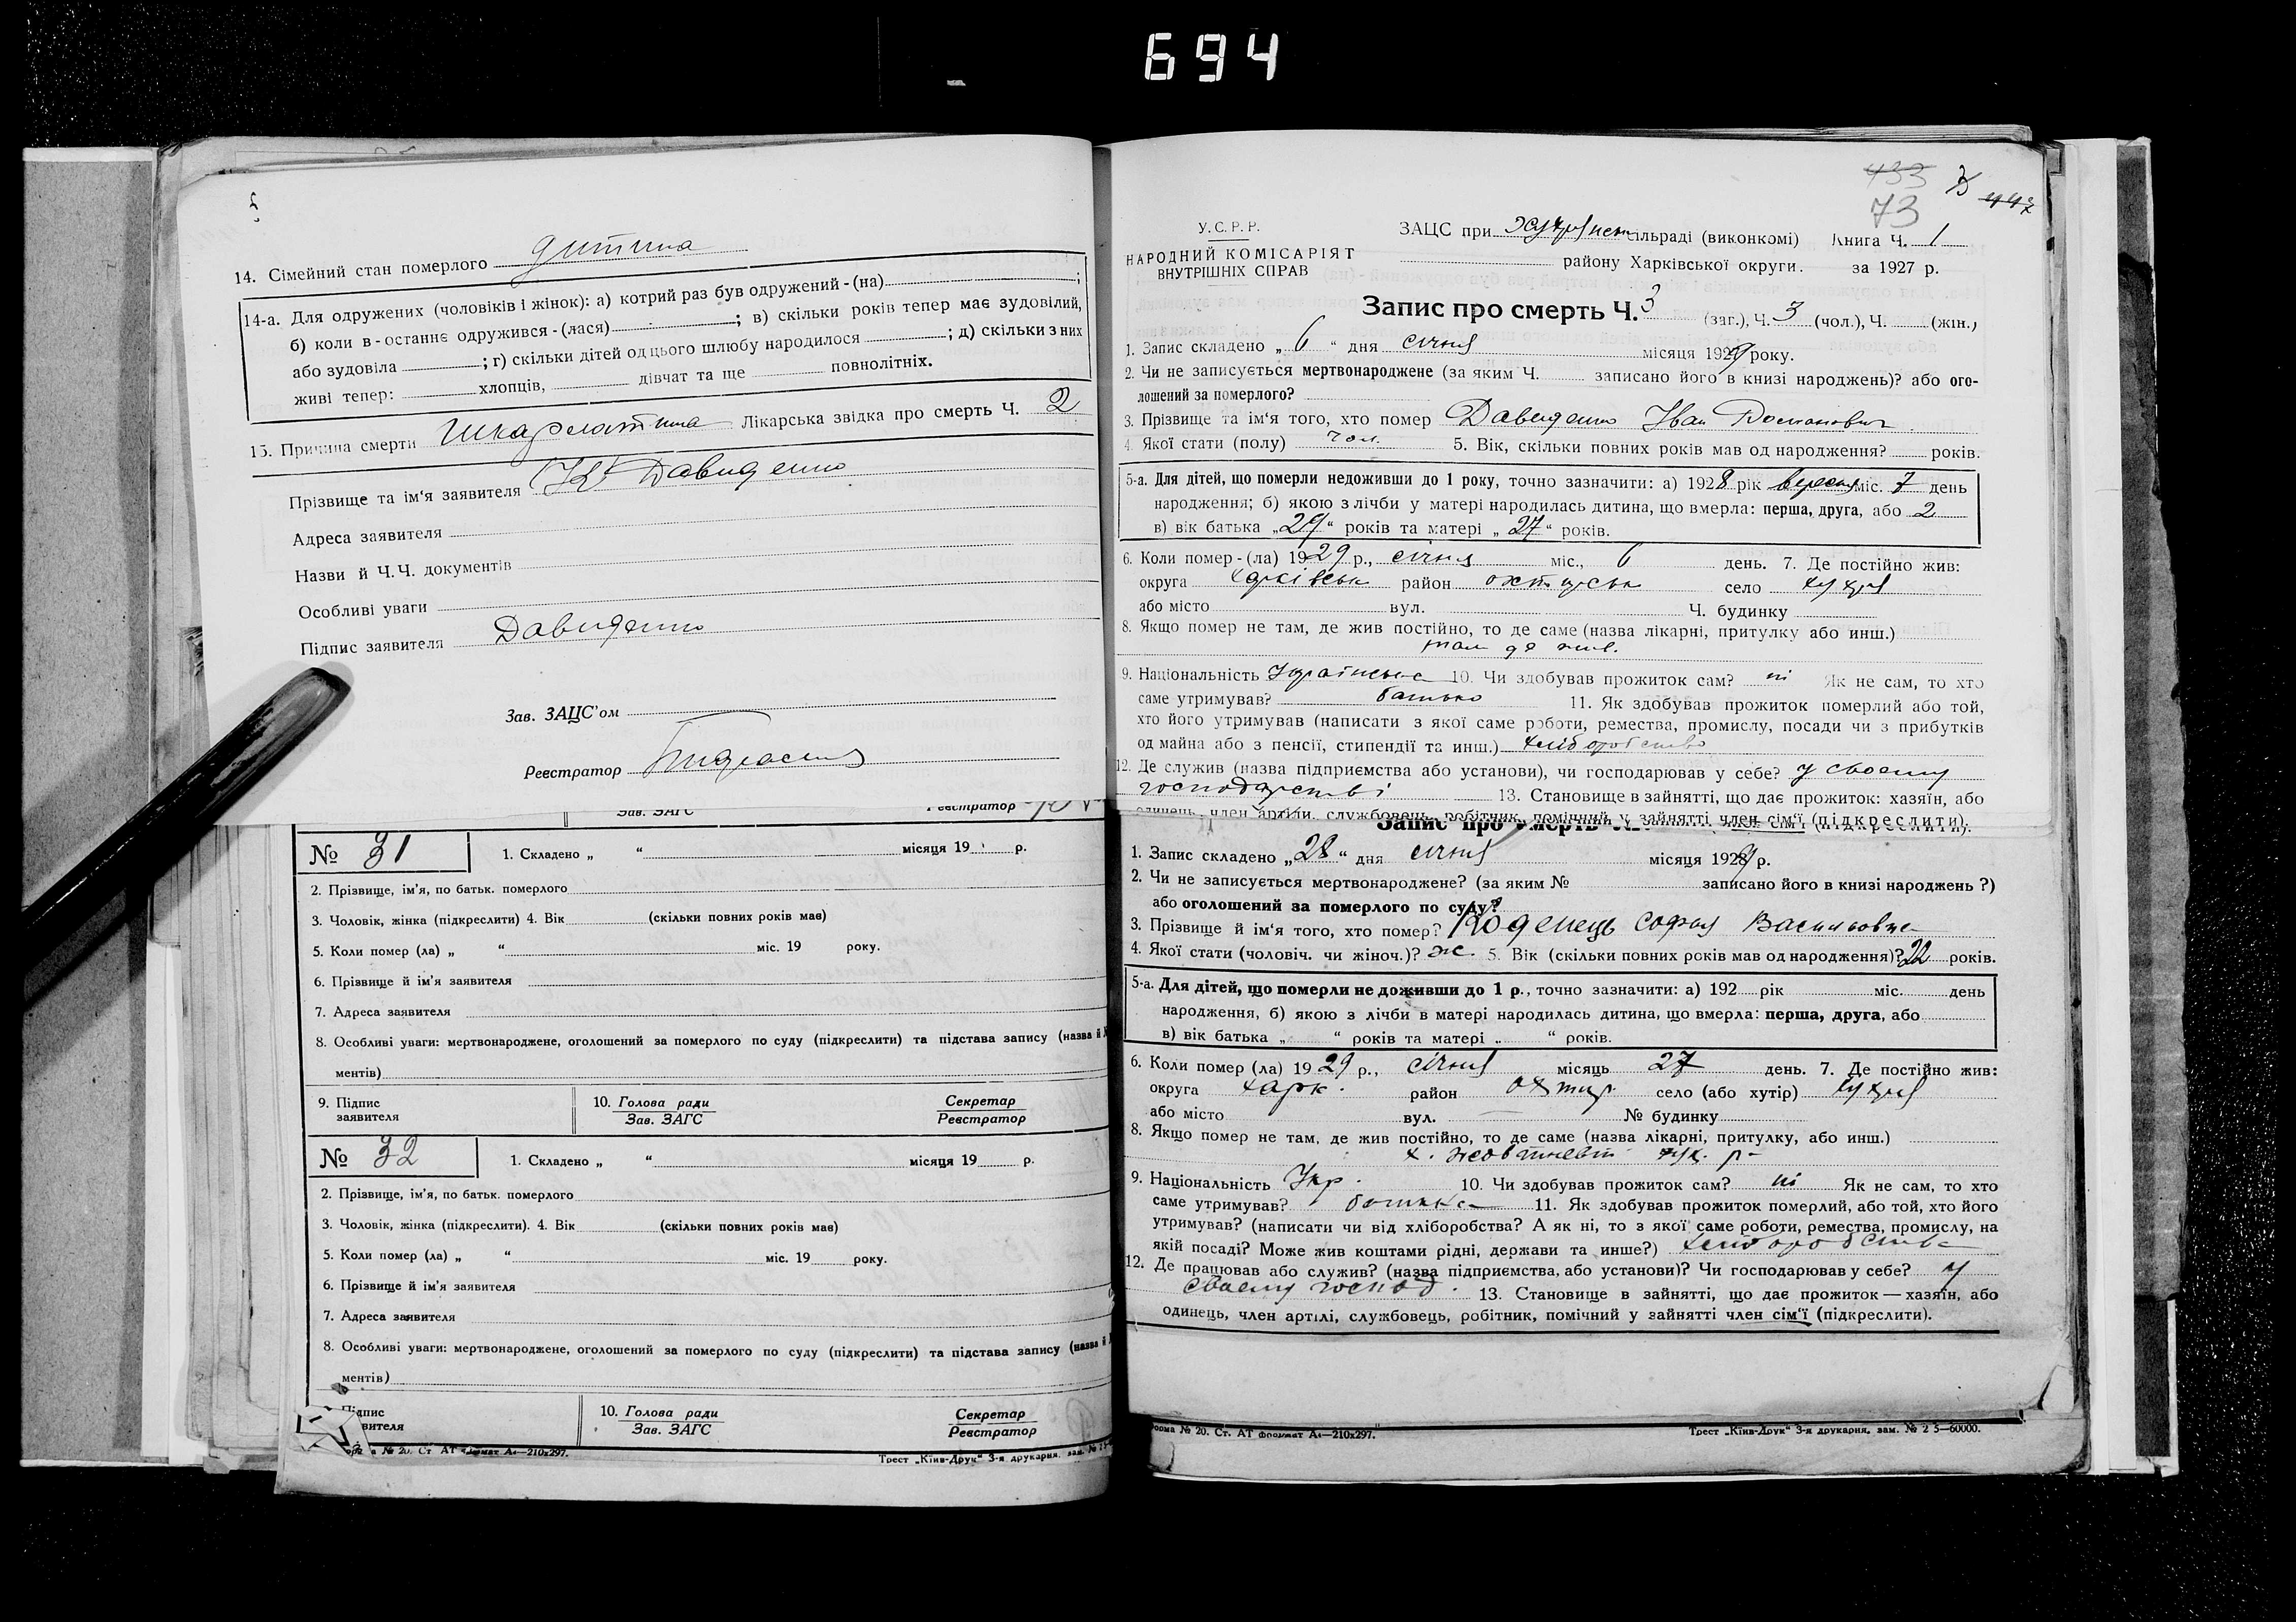 694
14. Сімейний стан померлого дитина
14-а. Для одружених (чоловіків і жінок): а) котрий раз був одружений-(на) ;
б) коли в-останнє одружився-(лася) ; в) скільки років тепер має зудовілий,
або зудовіла ; г) скільки дітей од цього шлюбу народилося ; д) скільки з них
живі тепер: хлопців, дівчат та ще повнолітніх.
15. Причина смерти Шкарлатина Лікарська звідка про смерть Ч. 2
Прізвище та ім'я заявителя Давиденко
Адреса заявителя
Назви й Ч.Ч. документів
Особливі уваги
Підпис заявителя Давиденко
Зав. ЗАЦС'ом
Реєстратор
Зав. ЗАГС Реєстратор
№ 31 1. Складено „ “ місяця 19 р.
2. Прізвище, ім'я, по батьк. померлого
3. Чоловік, жінка (підкреслити) 4. Вік (скільки повних років має)
5. Коли помер (ла) „ “ міс. 19 року.
6. Прізвище й ім'я заявителя
7. Адреса заявителя
8. Особливі уваги: мертвонароджене, оголошений за померлого по суду (підкреслити) та підстава запису (назва й
ментів)
9. Підпис заявителя 10. Голова ради Зав. ЗАГС Секретар Реєстратор
№ 32 1. Складено „ “ місяця 19 р.
2. Прізвище, ім'я, по батьк. померлого
3. Чоловік, жінка (підкреслити). 4. Вік (скільки повних років має)
5. Коли помер (ла) „ “ міс. 19 року.
6. Прізвище й ім'я заявителя
7. Адреса заявителя
8. Особливі уваги: мертвонароджене, оголошений за померлого по суду (підкреслити) та підстава запису (назва й
ментів)
Підпис
10. Голова ради Зав. ЗАГС Секретар Реєстратор
№ 20. Ст. АТ формат А4—210х297. Трест „Київ-Друк“ 3-я друкарня, зам. № 2
433 447
73
У.С.Р.Р. ЗАЦС при сільраді (виконкомі) Книга Ч. 1
НАРОДНИЙ КОМІСАРІЯТ
ВНУТРІШНІХ СПРАВ району Харківської округи. за 1927 р.
Запис про смерть Ч. 3 (заг.), Ч. 3 (чол.), Ч. (жін.)
1. Запис складено „ 6 “ дня січня місяця 1929 року.
2. Чи не записується мертвонароджене (за яким Ч. записано його в книзі народжень)? або ого-
лошений за померлого?
3. Прізвище та ім'я того, хто помер Давиденко Іван
4. Якої стати (полу) чол. 5. Вік, скільки повних років мав од народження? років.
5-а. Для дітей, що померли недоживши до 1 року, точно зазначити: а) 1928 рік вересня міс. 7 день
народження; б) якою з лічби у матері народилась дитина, що вмерла: перша, друга, або 2
в) вік батька „ 29 “ років та матері „ 27 “ років.
6. Коли помер-(ла) 1929 р., січня міс., 6 день. 7. Де постійно жив:
округа Харківськ район охтирськ село хухря
або місто вул. Ч. будинку
8. Якщо помер не там, де жив постійно, то де саме (назва лікарні, притулку або инш.)
там де жив.
9. Національність Українськ 10. Чи здобував прожиток сам? ні Як не сам, то хто
саме утримував? батько 11. Як здобував прожиток померлий або той,
хто його утримував (написати з якої саме роботи, ремества, промислу, посади чи з прибутків
од майна або з пенсії, стипендії та инш.) хліборобство
12. Де служив (назва підприємства або установи), чи господарював у себе? у своєму
господарстві 13. Становище в зайнятті, що дає прожиток: хазяїн, або
одинець, член артіли, службовець, робітник, помічний у зайнятті член сім'ї (підкреслити).
Запис про смерть
1. Запис складено „28“ дня січня місяця 1929 р.
2. Чи не записується мертвонароджене? (за яким № записано його в книзі народжень ?)
або оголошений за померлого по суду?
3. Прізвище й ім'я того, хто помер? Софья Васильовна
4. Якої стати (чоловіч. чи жіноч.)? ж. 5. Вік (скільки повних років мав од народження)? 22 років.
5-а. Для дітей, що померли не доживши до 1 р., точно зазначити: а) 192 рік міс. день
народження, б) якою з лічби в матері народилась дитина, що вмерла: перша, друга, або
в) вік батька „ “ років та матері „ “ років.
6. Коли помер (ла) 1929 р., січня місяць 27 день. 7. Де постійно жив:
округа Харк. район Охтир. село (або хутір) хухря
або місто вул. № будинку
8. Якщо помер не там, де жив постійно, то де саме (назва лікарні, притулку, або инш.)
9. Національність Укр. 10. Чи здобував прожиток сам? ні Як не сам, то хто
саме утримував? батько 11. Як здобував прожиток померлий, або той, хто його
утримував? (написати чи від хліборобства? А як ні, то з якої саме роботи, ремества, промислу, на
якій посаді? Може жив коштами рідні, держави та инше?) хліборобство
12. Де працював або служив? (назва підприємства, або установи)? Чи господарював у себе? у
своєму господ. 13. Становище в зайнятті, що дає прожиток — хазяїн, або
одинець, член артілі, службовець, робітник, помічний у зайнятті член сім'ї (підкреслити).
Форма № 20. Ст. АТ формат А4—210х297. Трест „Київ-Друк“ 3-я друкарня, зам. № 2 5—60000.